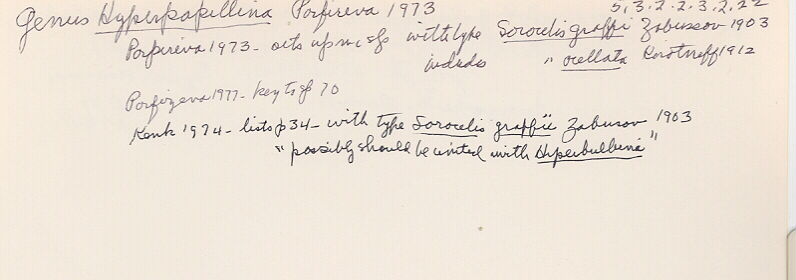 Genus Hyperpapillina Porfireva 1973 5.3.2.2.3.2.22
Porfireva 1973 - sets up m sfs with type Sorocelis graffi Zabussov 1903
includes " ocellata Korotneff 1912
Porfirjeva 1977 - key to sp 70
Kenk 1974 - lists p34 - with type Sorocelis graffii Zabusov 1903
"possibly should be united with Hyperbulbina"